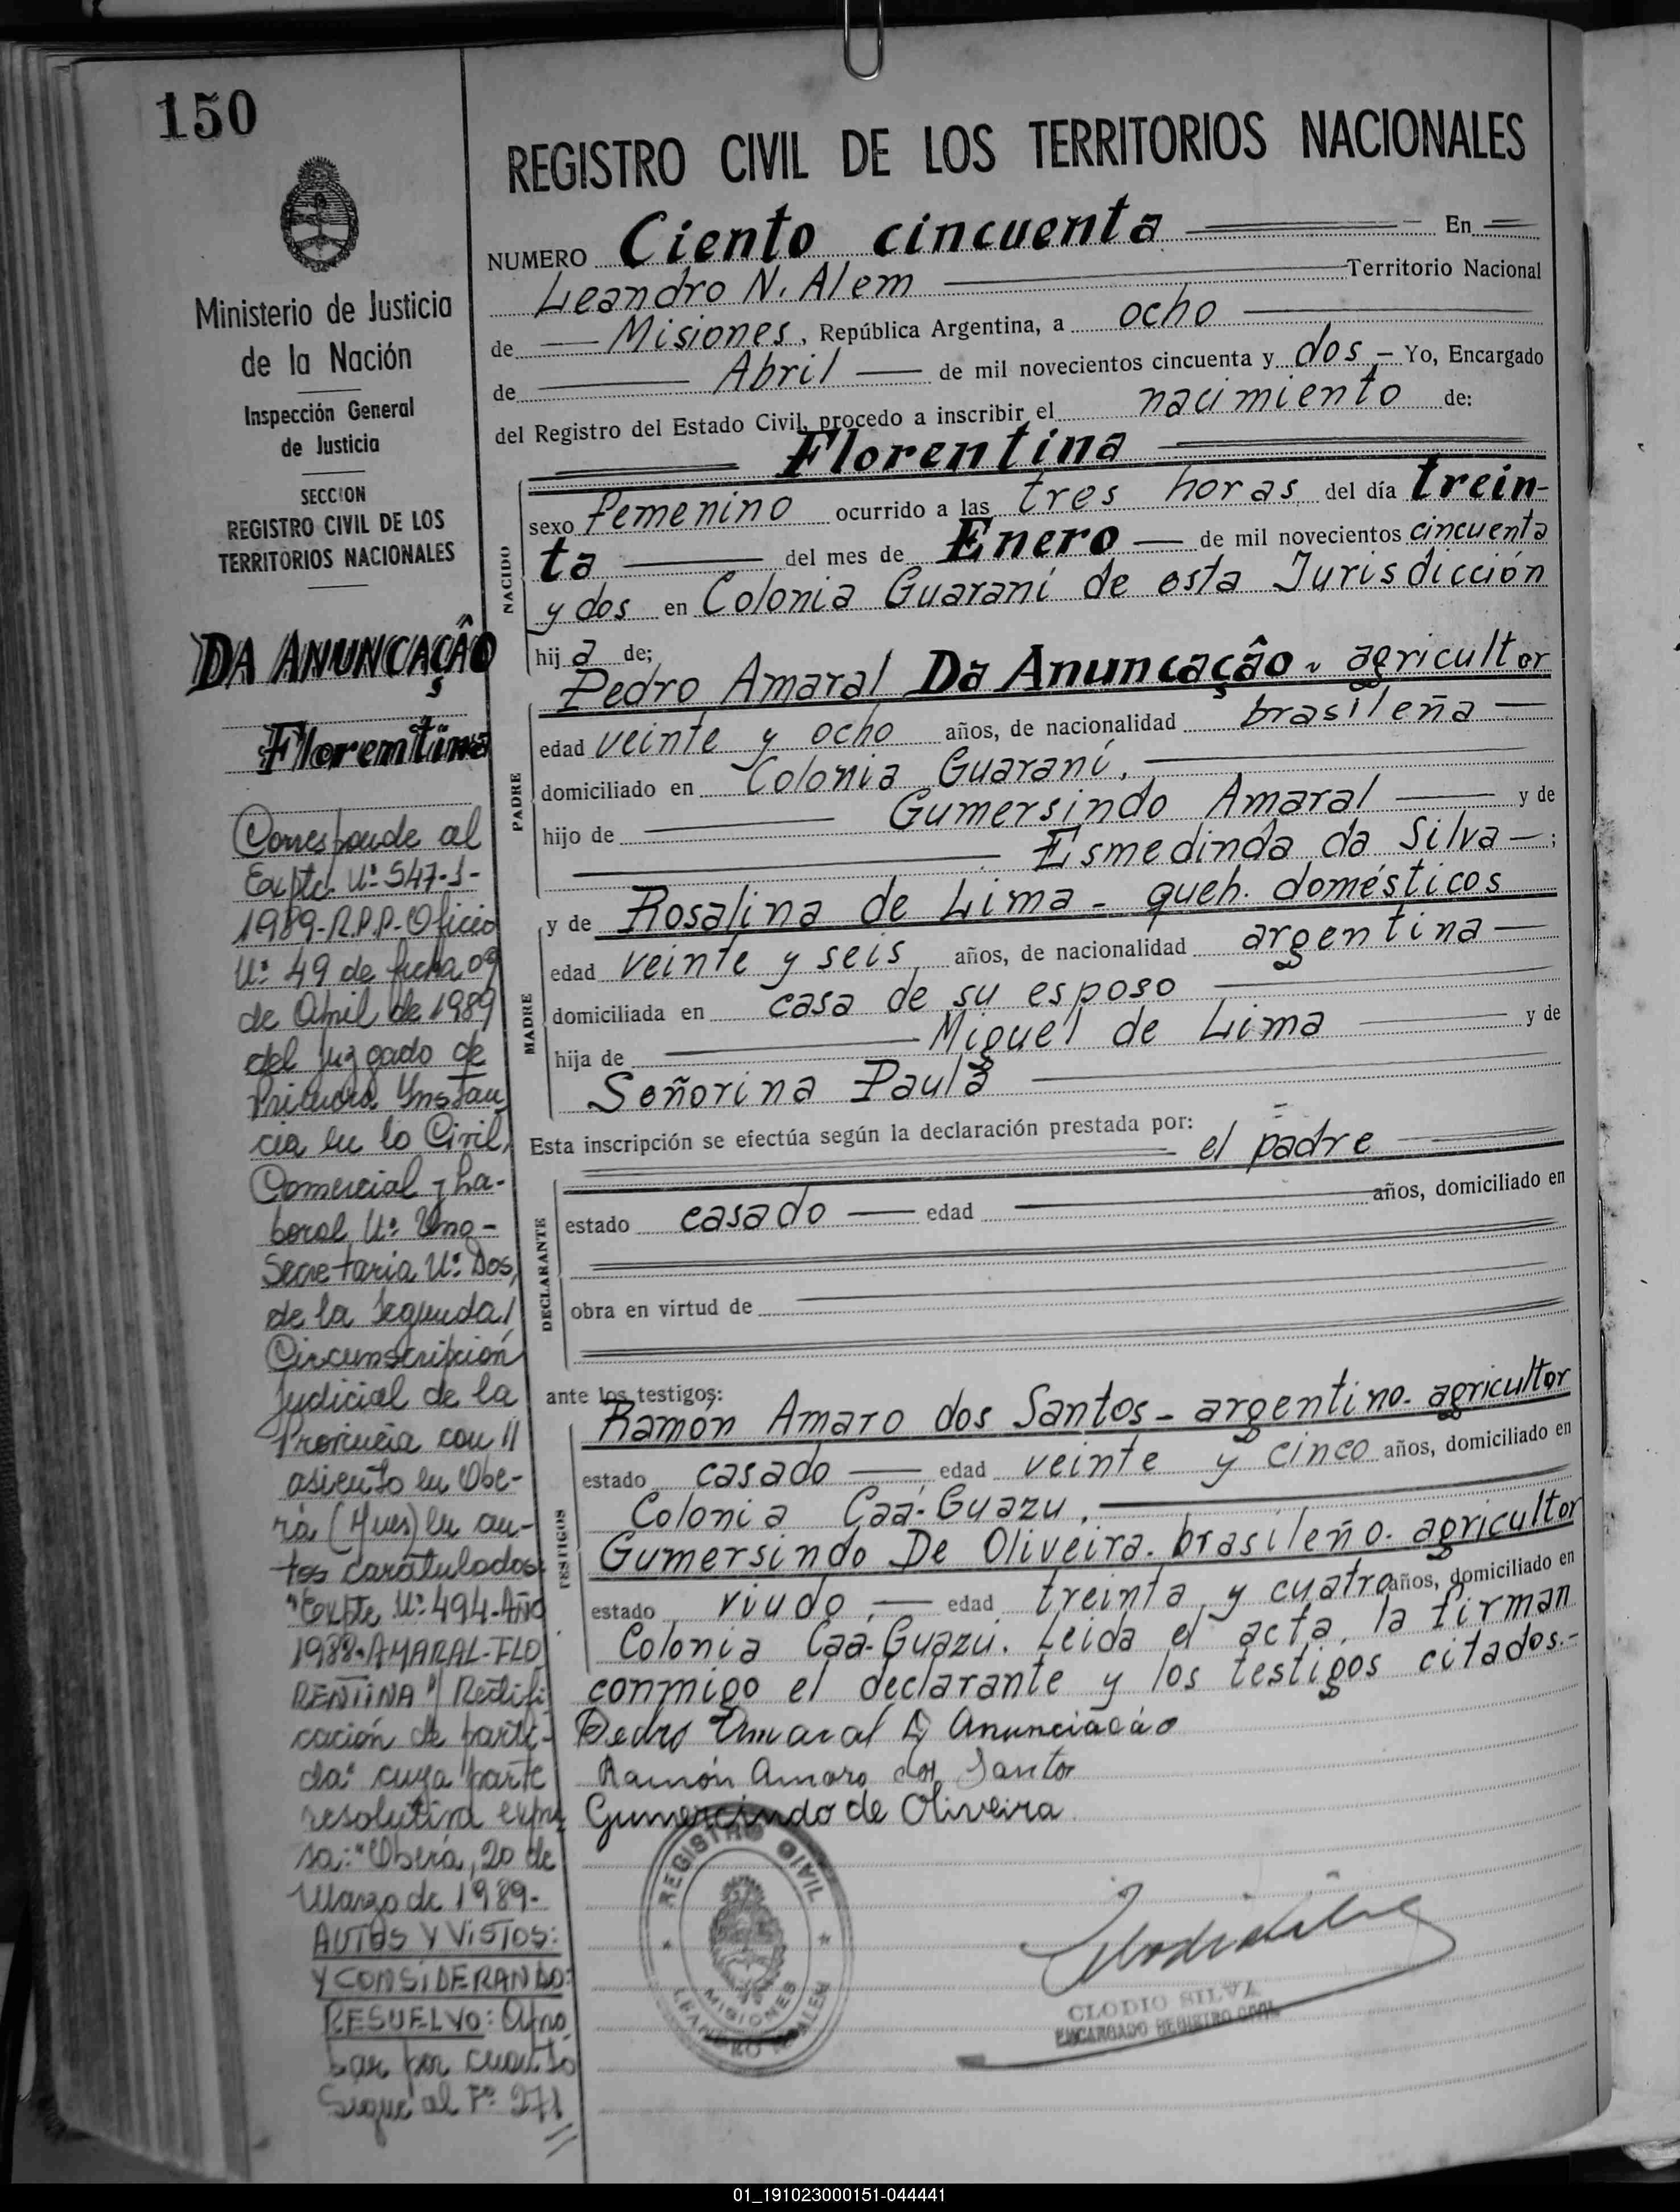 150
Ministerio de Justicia
de la Nación
Inspección General
de Justicia
SECCION
REGISTRO CIVIL DE LOS
TERRITORIOS NACIONALES
DA ANUNCAÇÂO
Florentina
Corresponde al
Expte. Nº 547-J-
1989-R.P.P.-Oficio
Nº 49 de fecha 09
de Abril de 1989
del Juzgado de
Primera Instan
cia en lo Civil,
Comercial y La-
boral Nº Uno-
Secretaria Nº Dos,
de la Segunda/
Circunscripción
Judicial de la
Provincia con //
asiento en Obe-
rá (Mnes) en au-
tos caratulados:
"Expte Nº 494-Año
1988-AMARAL-FLO
RENTINA s/ Rectifi
cación de parti-
da" cuya parte
resolutiva expre
sa: "Oberá, 20 de
Marzo de 1989-
AUTOS Y VISTOS:
Y CONSIDERANDO:
RESUELVO: Apro
bar por cuanto
Sigue al Fº 271
//
REGISTRO CIVIL DE LOS TERRITORIOS NACIONALES
NUMERO Ciento cincuenta En
Leandro N. Alem Territorio Nacional
de Misiones, República Argentina, a ocho
de Abril de mil novecientos cincuenta y dos - Yo, Encargado
del Registro del Estado Civil, procedo a inscribir el nacimiento de:
Florentina
NACIDO
sexo femenino ocurrido a las tres horas del día trein-
ta del mes de Enero de mil novecientos cincuenta
y dos en Colonia Guaraní de esta Jurisdicción
hija de;
Pedro Amaral Da Anuncaçâo. agricultor
PADRE
edad veinte y ocho años, de nacionalidad brasileña
domiciliado en Colonia Guaraní.
hijo de Gumersindo Amaral y de
Esmedinda da Silva ;
y de Rosalina de Lima - queh. domésticos
MADRE
edad veinte y seis años, de nacionalidad argentina
domiciliada en casa de su esposo
hija de Miguel de Lima y de
Señorina Paula
Esta inscripción se efectúa según la declaración prestada por:
el padre
DECLARANTE
estado casado edad años, domiciliado en
obra en virtud de
ante los testigos:
Ramón Amaro dos Santos - argentino. agricultor
TESTIGOS
estado casado edad veinte y cinco años, domiciliado en
Colonia Caá-Guazu.
Gumersindo De Oliveira. brasileño. agricultor
estado viudo. edad treinta y cuatro años, domiciliado en
Colonia Caa-Guazú. Leida el acta, la firman
conmigo el declarante y los testigos citados.-
Pedro Amaral D Anunciacáo
Ramón Amaro dos Santos
Gumercindo de Oliveira
REGISTRO CIVIL
MISIONES
LEANDRO N. ALEM
CLODIO SILVA
ENCARGADO REGISTRO CIVIL
01_191023000151-044441